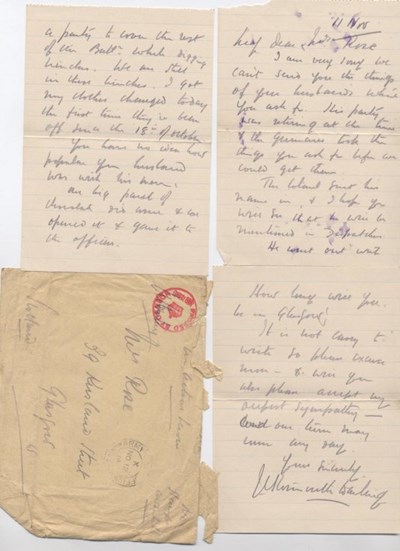 11 Nov
My dear Mrs Rose
I am very sorry we
can't send you the things
of your husbands which
you ask for. His party
was retiring at the time
& the Germans took the
things you ask for before we
could get them.
The Colonel sent his
name in & I hope you
will see that he will be
mentioned in Despatches
He went out with
a party to cover the rest
of the Battn. while digging
trenches. We are still
in these trenches. I got
my clothes changed today
the first time they've been
off since the 18th of October
You have no idea how
popular your husband
was with his men.
One big parcel of
did come & we
opened it & gave it to
the officers.
How long will you
be in Glasgow?
It is not easy to
write so please excuse
more - & will you
also please accept my
deepest sympathy
our turn may
come any day.
Yours sincerely
Mrs Rose
39 Street
Glasgow
Scotland